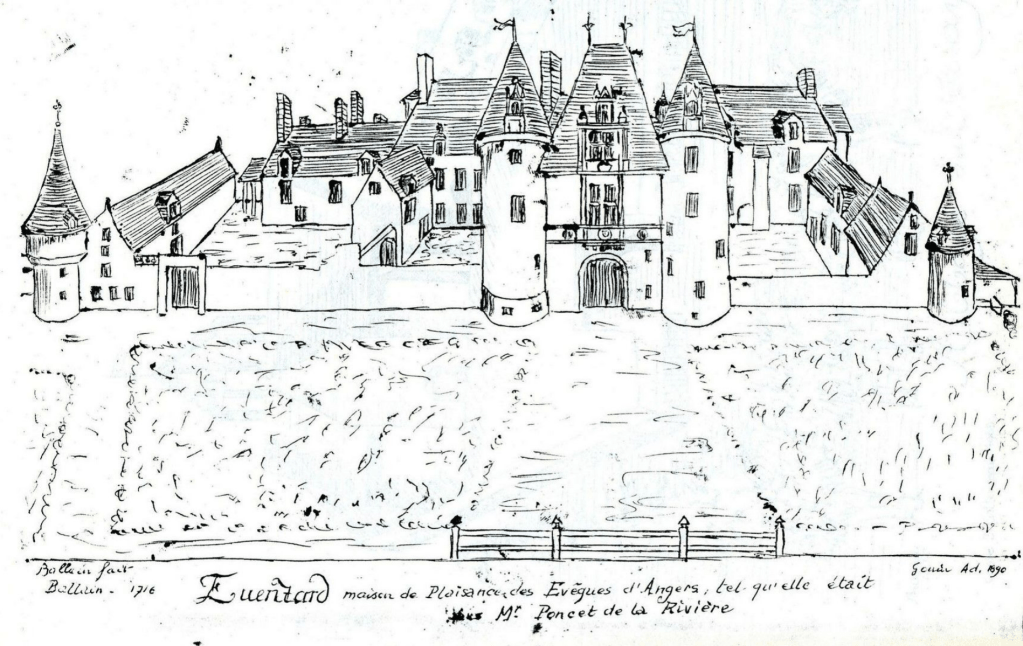 Ballain fait
Ballain - 1716
Gendr Ad. 1890
Eventard maison de Plaisance, des Evêques d'Angers, tel. qu'elle était
Mr Poncet de la Rivière